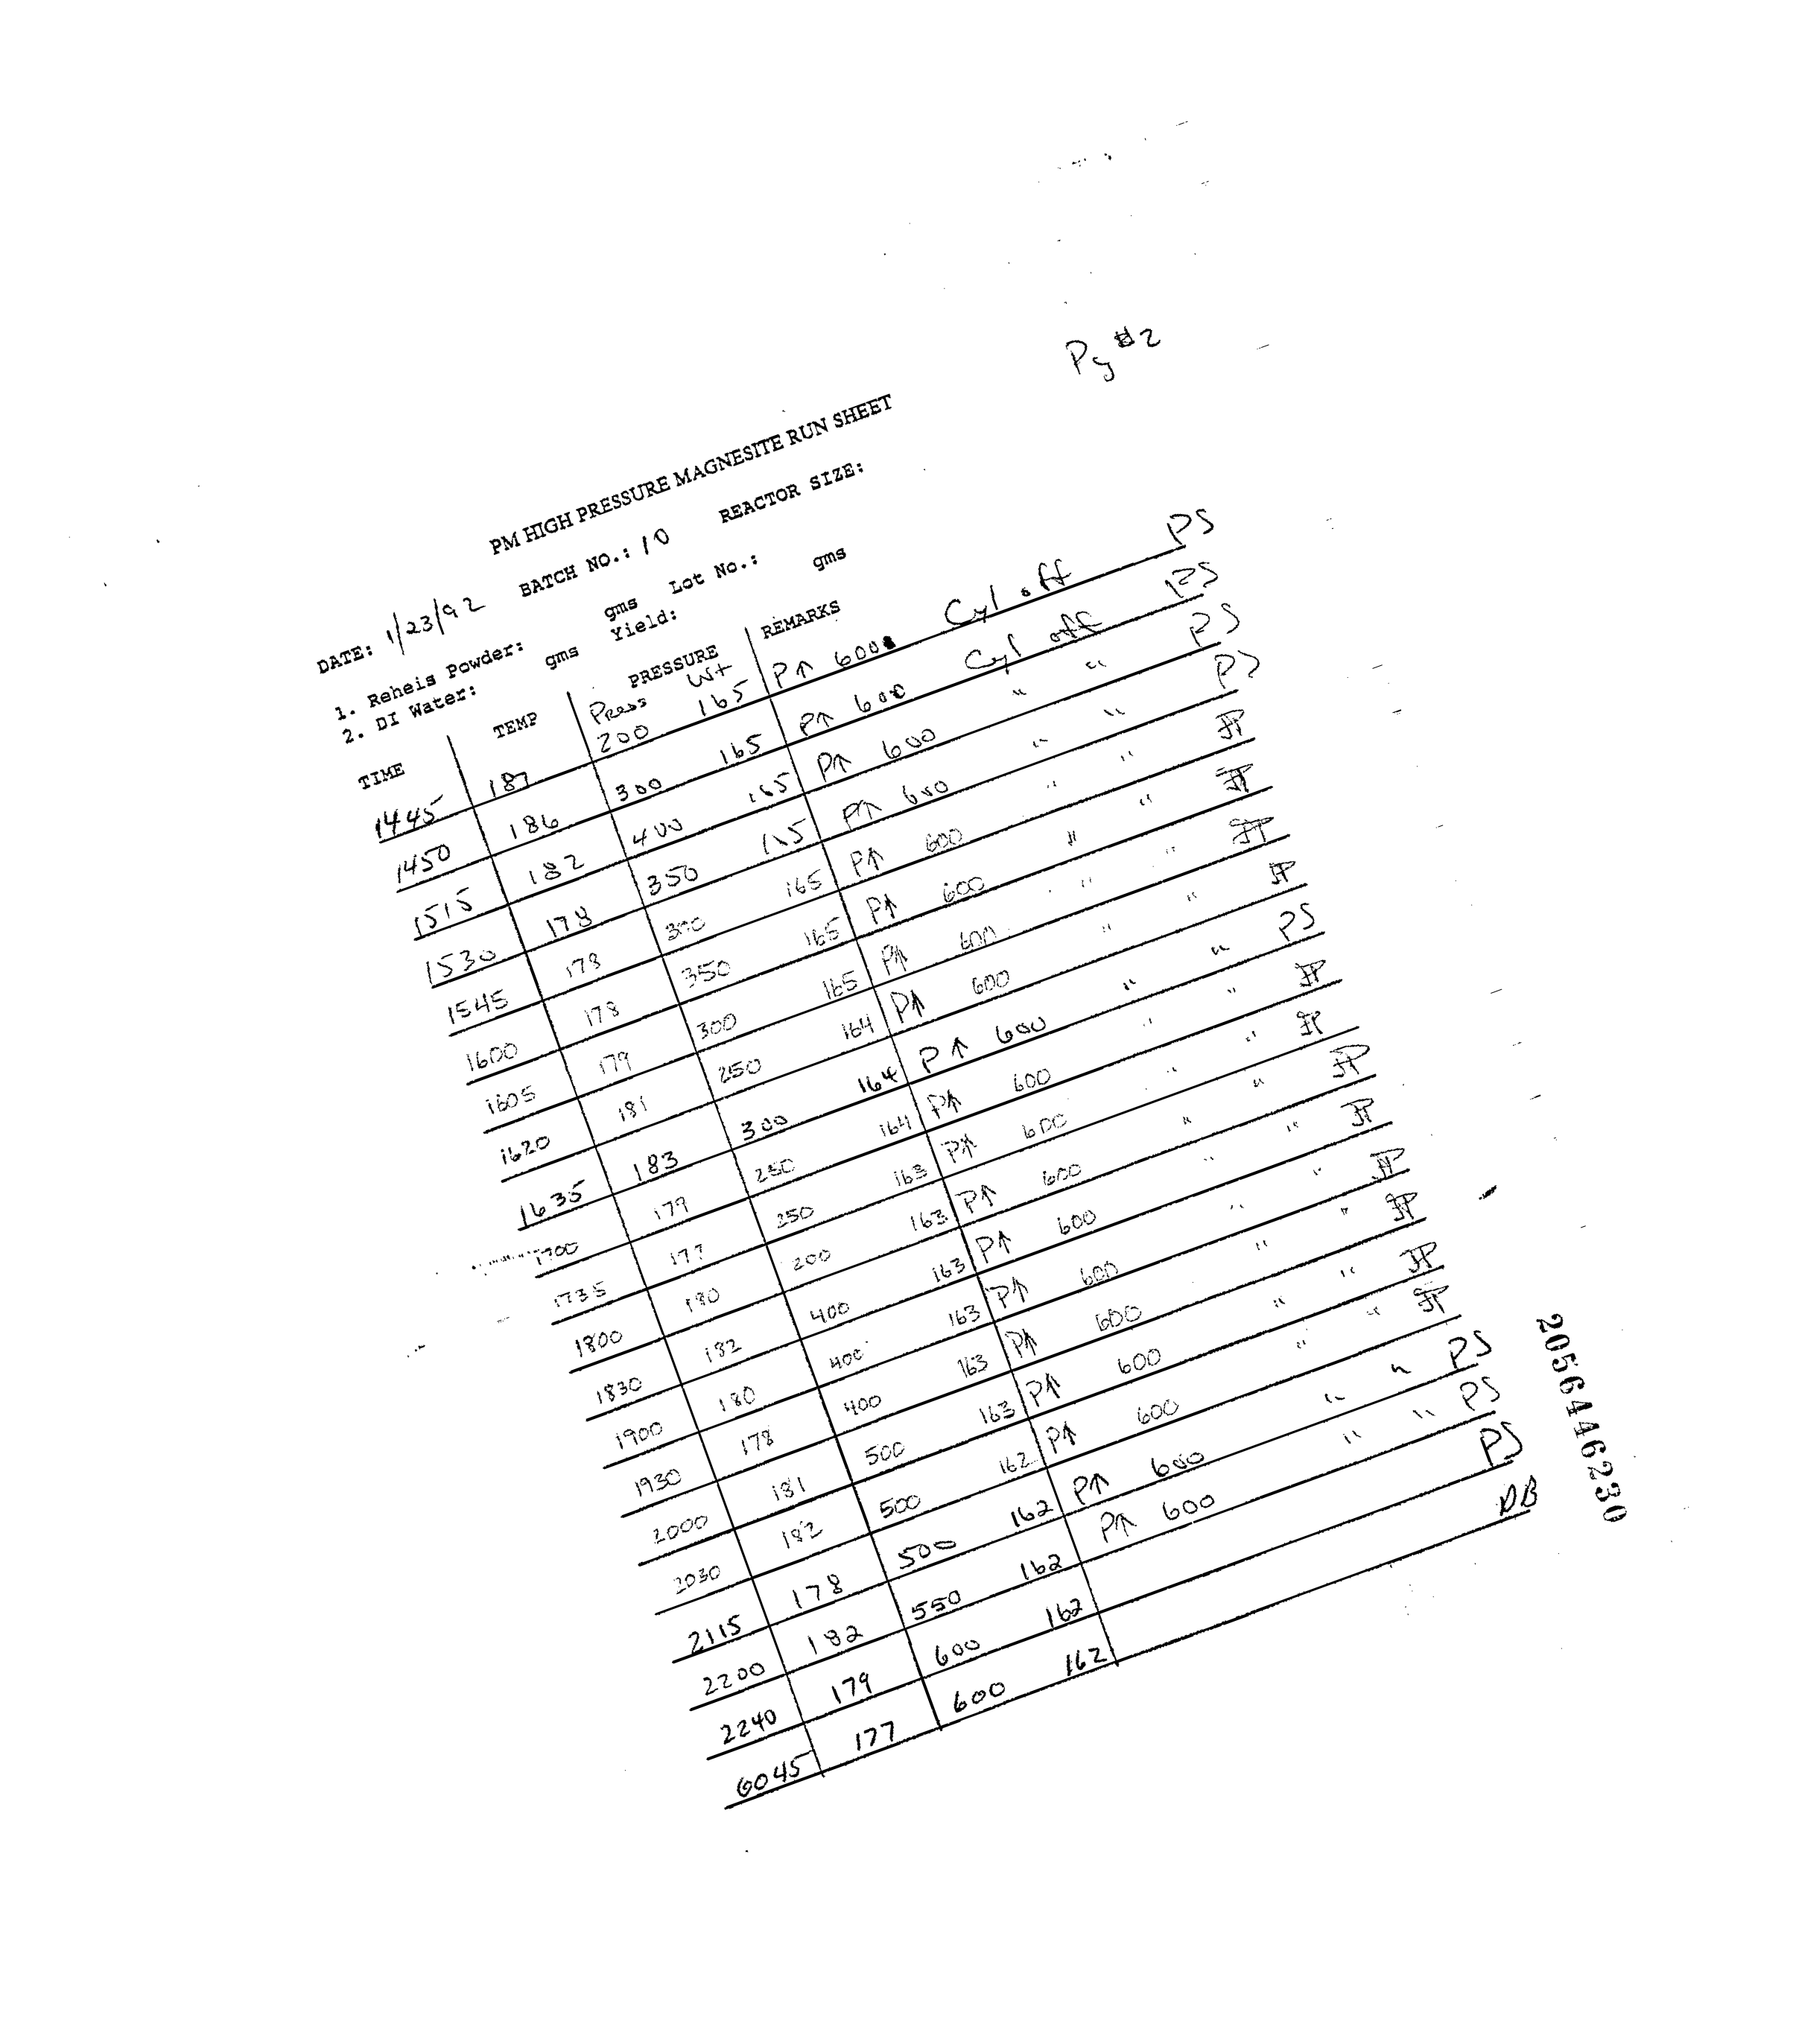 Pg #2
PM HIGH PRESSURE MAGNESITE RUN SHEET
DATE: 1/23/92 BATCH NO.: 10 REACTOR SIZE:
1. Reheis Powder: gms Lot No.: gms
2. DI Water: gms Yield:
TIME TEMP PRESSURE REMARKS
Press Wt
1445 187 200 165 P↑ 600 Cyl off PS
1450 186 300 165 P↑ 600 Cyl off PS
1515 182 400 165 P↑ 600 " " PS
1530 178 350 165 P↑ 600 " " PS
1545 178 300 165 P↑ 600 " " JP
1600 178 350 165 P↑ 600 " " JP
1605 179 300 165 P↑ 600 " " JP
1620 181 250 164 P↑ 600 " " JP
1635 183 300 164 P↑ 600 " " PS
1700 179 250 164 P↑ 600 " " JP
1735 177 250 163 P↑ 600 " " JP
1800 180 200 163 P↑ 600 " " JP
1830 182 400 163 P↑ 600 " " JP
1900 180 400 163 P↑ 600 " " JP
1930 178 400 163 P↑ 600 " " JP
2000 181 500 163 P↑ 600 " " JP
2030 182 500 162 P↑ 600 " " JP
2115 178 500 162 P↑ 600 " " PS
2200 182 550 162 P↑ 600 " " PS
2240 179 600 162 PS
0045 177 600 162 DB
2056446230